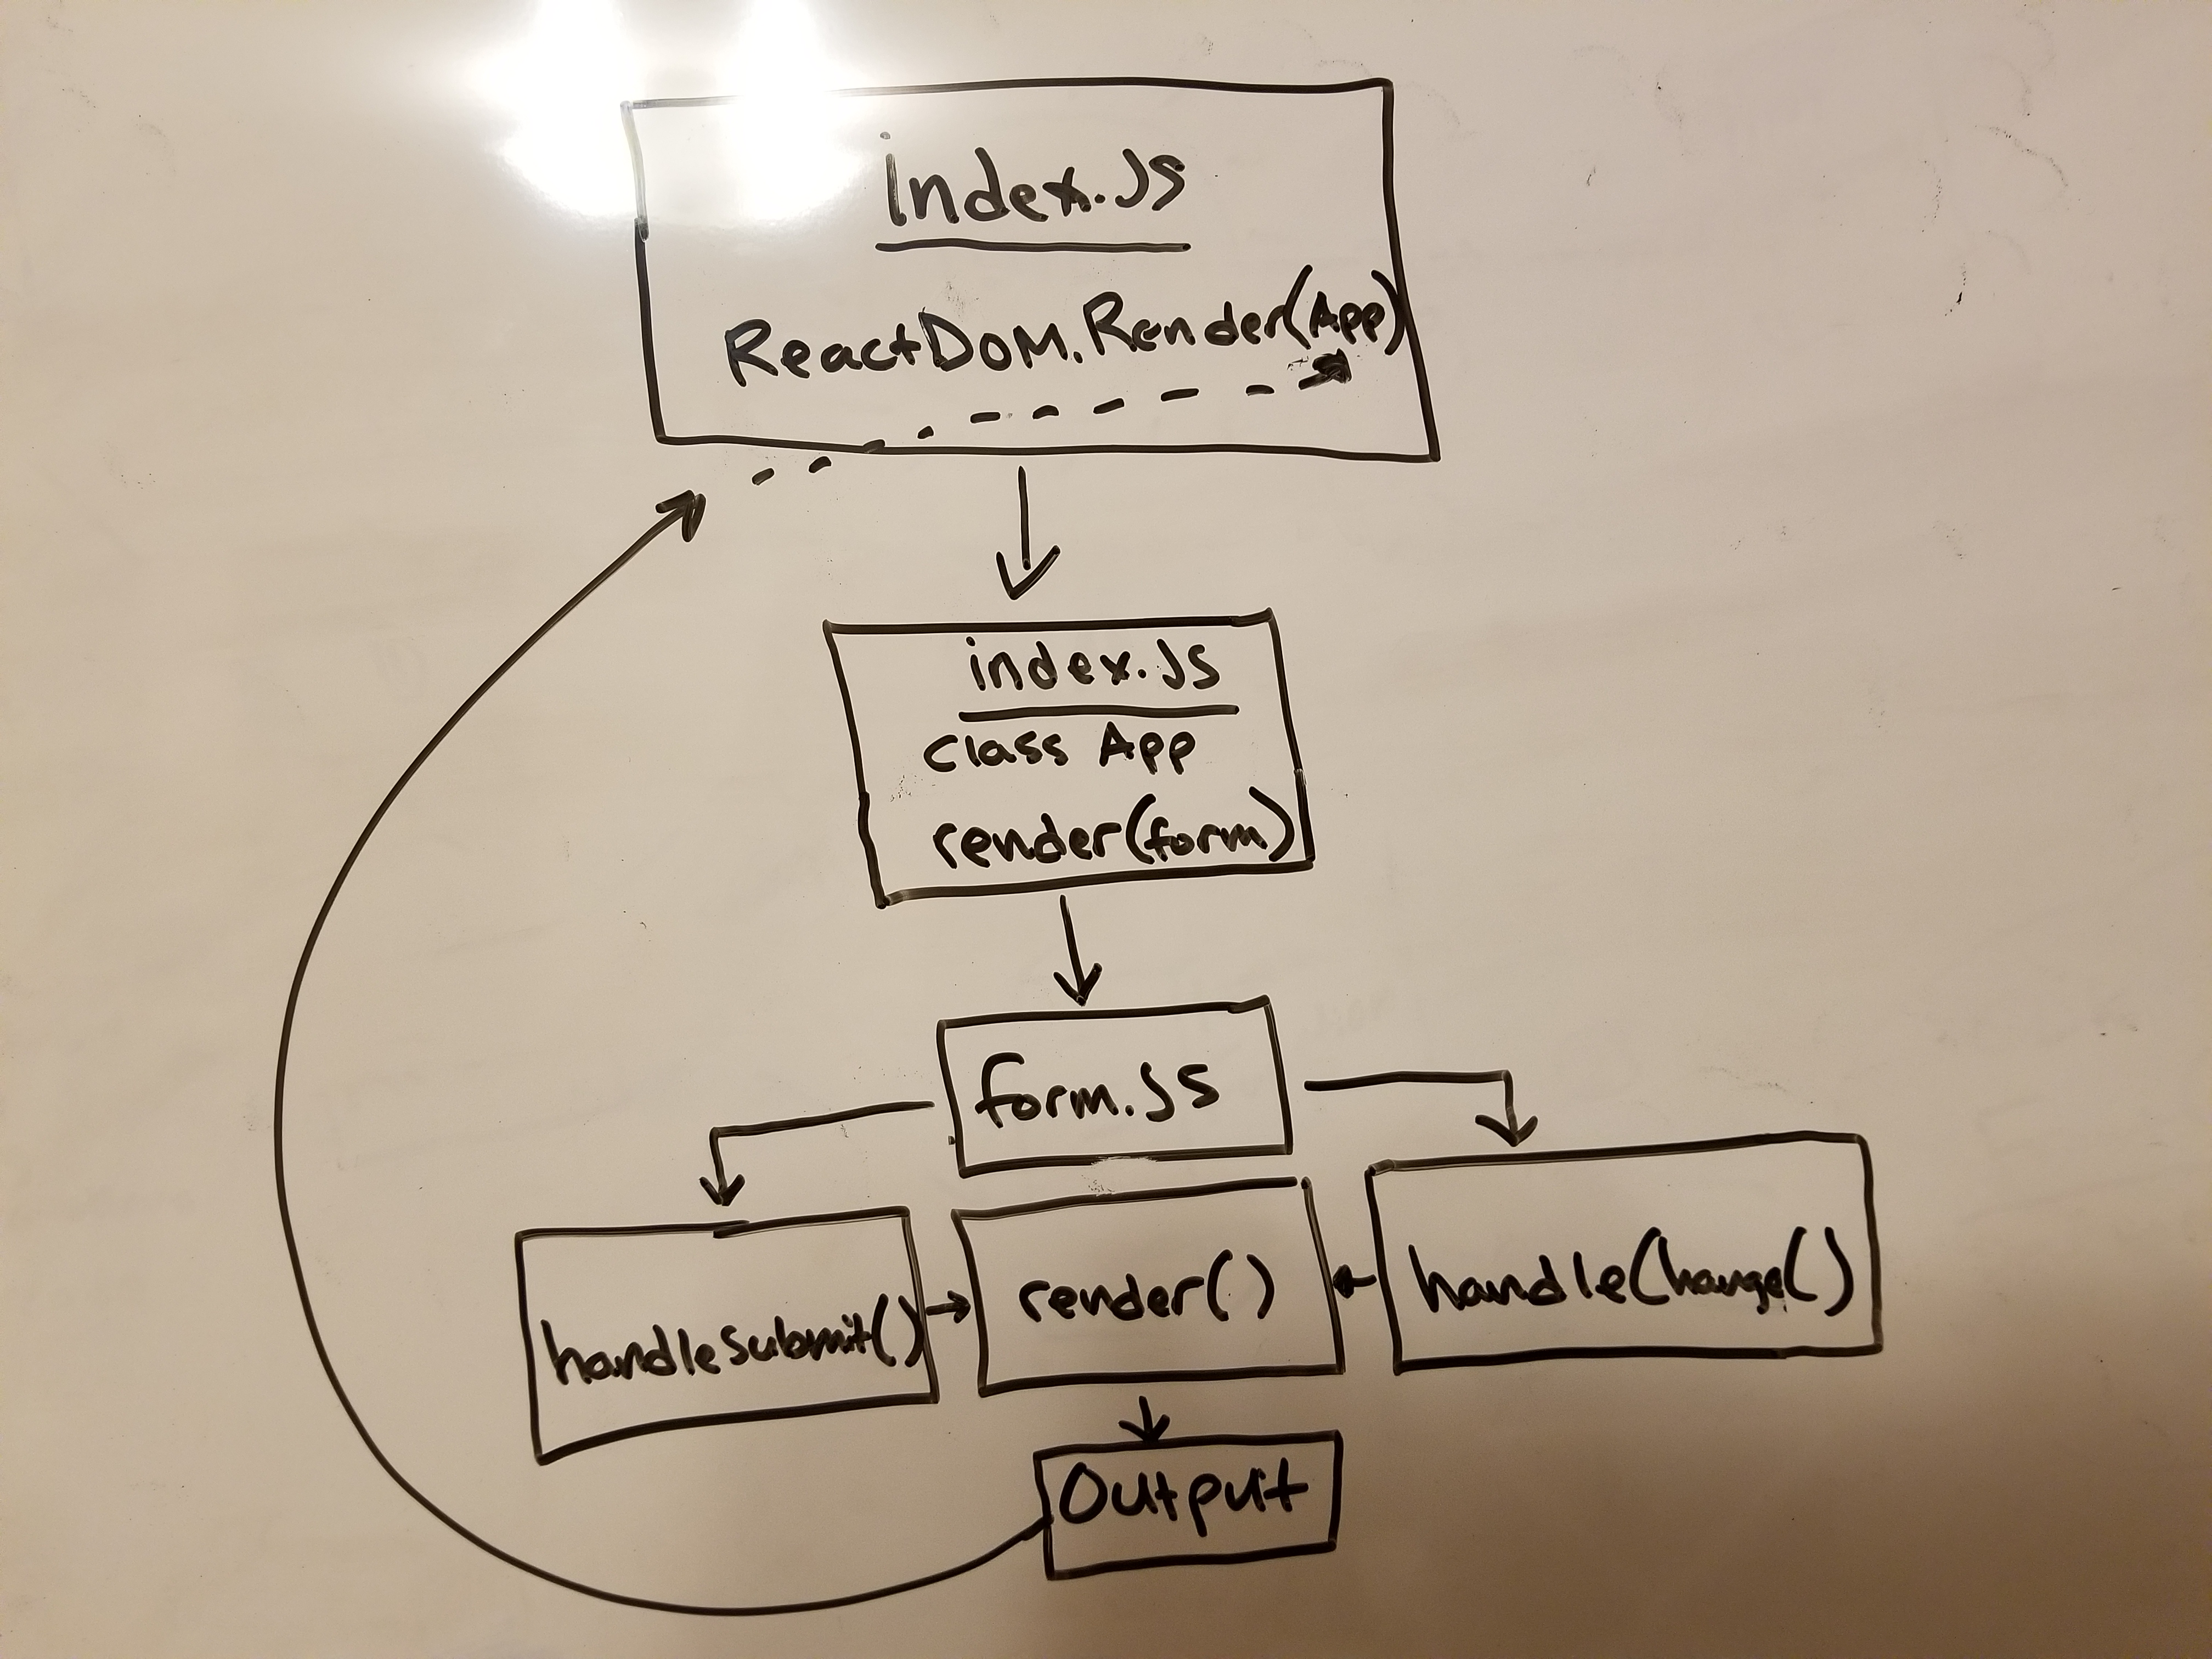 index.JS
ReactDOM.Render(App)
index.JS
class App
render(form)
form.JS
handlesubmit()
render()
handleChange()
Output